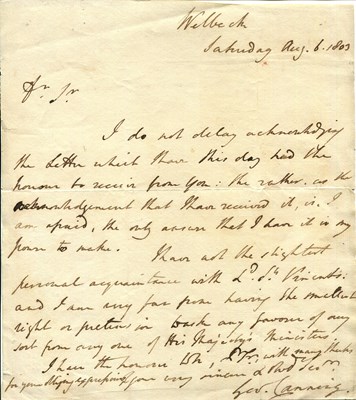 Welbeck
Saturday Aug. 6. 1803
Dr. Sr.
I do not delay acknowledging
the Letter which I have this day had the
honour to receive from you: the rather, as the
acknowledgement that I have received it, is, I
am afraid, the only answer that I have it in my
power to make.
I have not the slightest
personal acquaintance with Ld. St. Vincent:
and I am very far from having the smallest
right or pretension to ask any favour of any
sort from any one of His Majesty's Ministers.
I have the honour to be, with many thanks
for your obliging expressions, your very sincere & Obt. Servt.
Geo. Canning